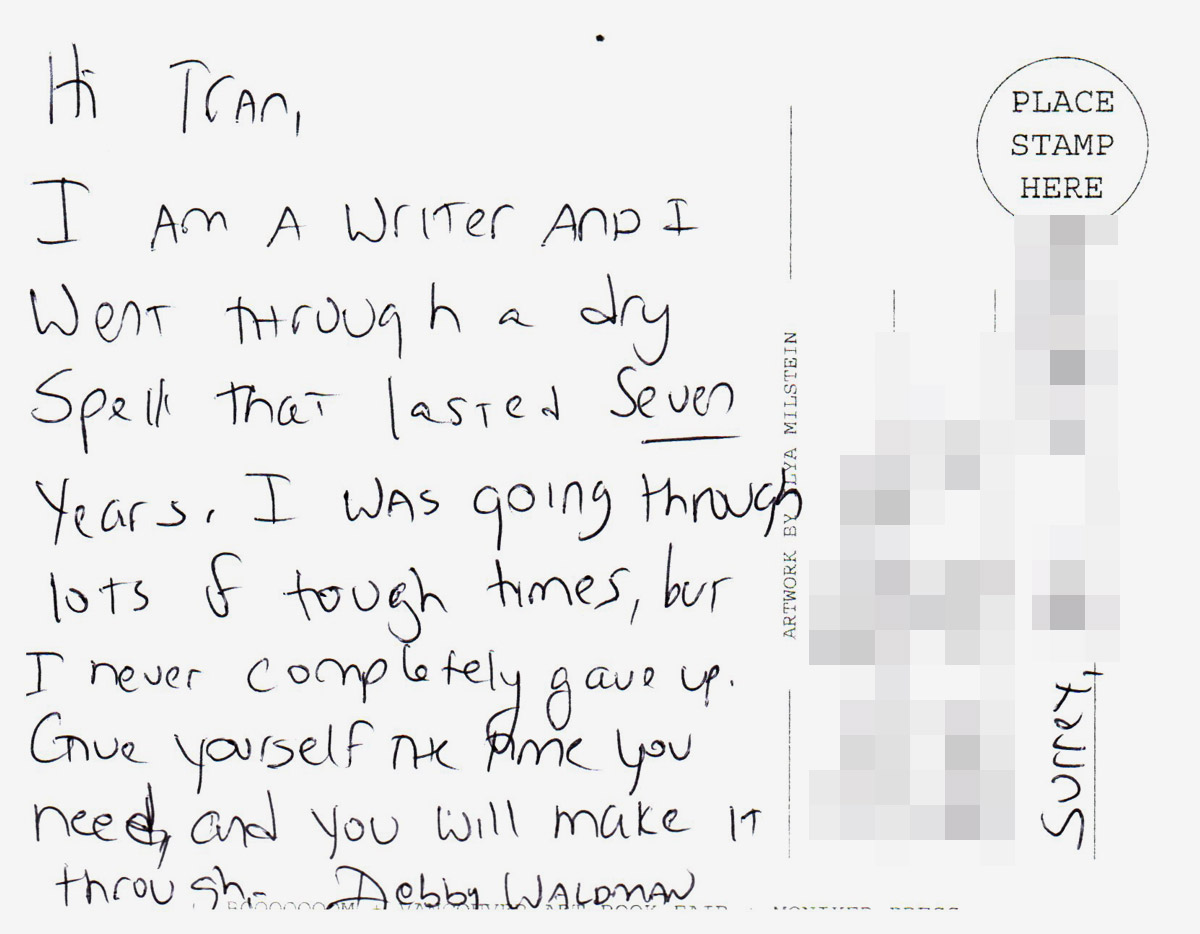 Hi Tran,
I AM A WRITER AND I
Went through a dry
Spell that lasted Seven
Years. I WAS going through
lots of tough times, but
I never completely gave up.
Give yourself the time you
need, and you will make it
through. - Debby WALDMAN
PLACE
STAMP
HERE
ARTWORK BY ILYA MILSTEIN
Surrey,
VANCOUVER ART BOOK FAIR · MONIKER PRESS